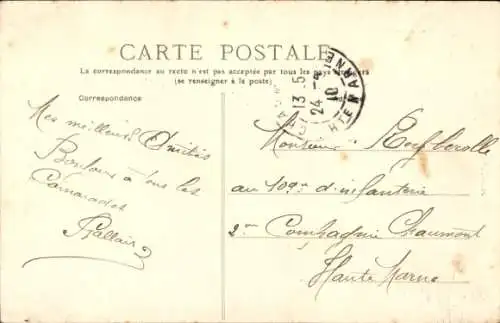 CARTE POSTALE
La correspondance au recto n'est pas acceptée par tous les pays étrangers
(se renseigner à la poste)
Correspondance
Mes meilleurs Amitiés
Bonjour à tous les
Camarades
13 15
24
10
HTE MARNE
Monsieur
au 109e d'infanterie
2me Compagnie Chaumont
Haute Marne